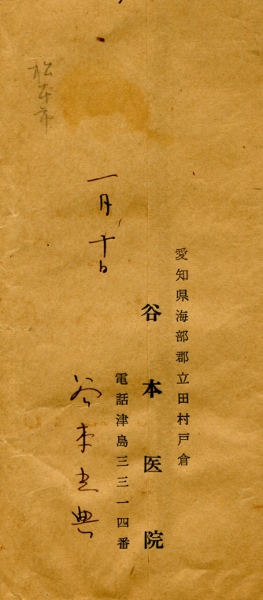 愛知県海部郡立田村戸倉
谷本医院
電話津島三三一四番
一月十日
谷本光典
松本市